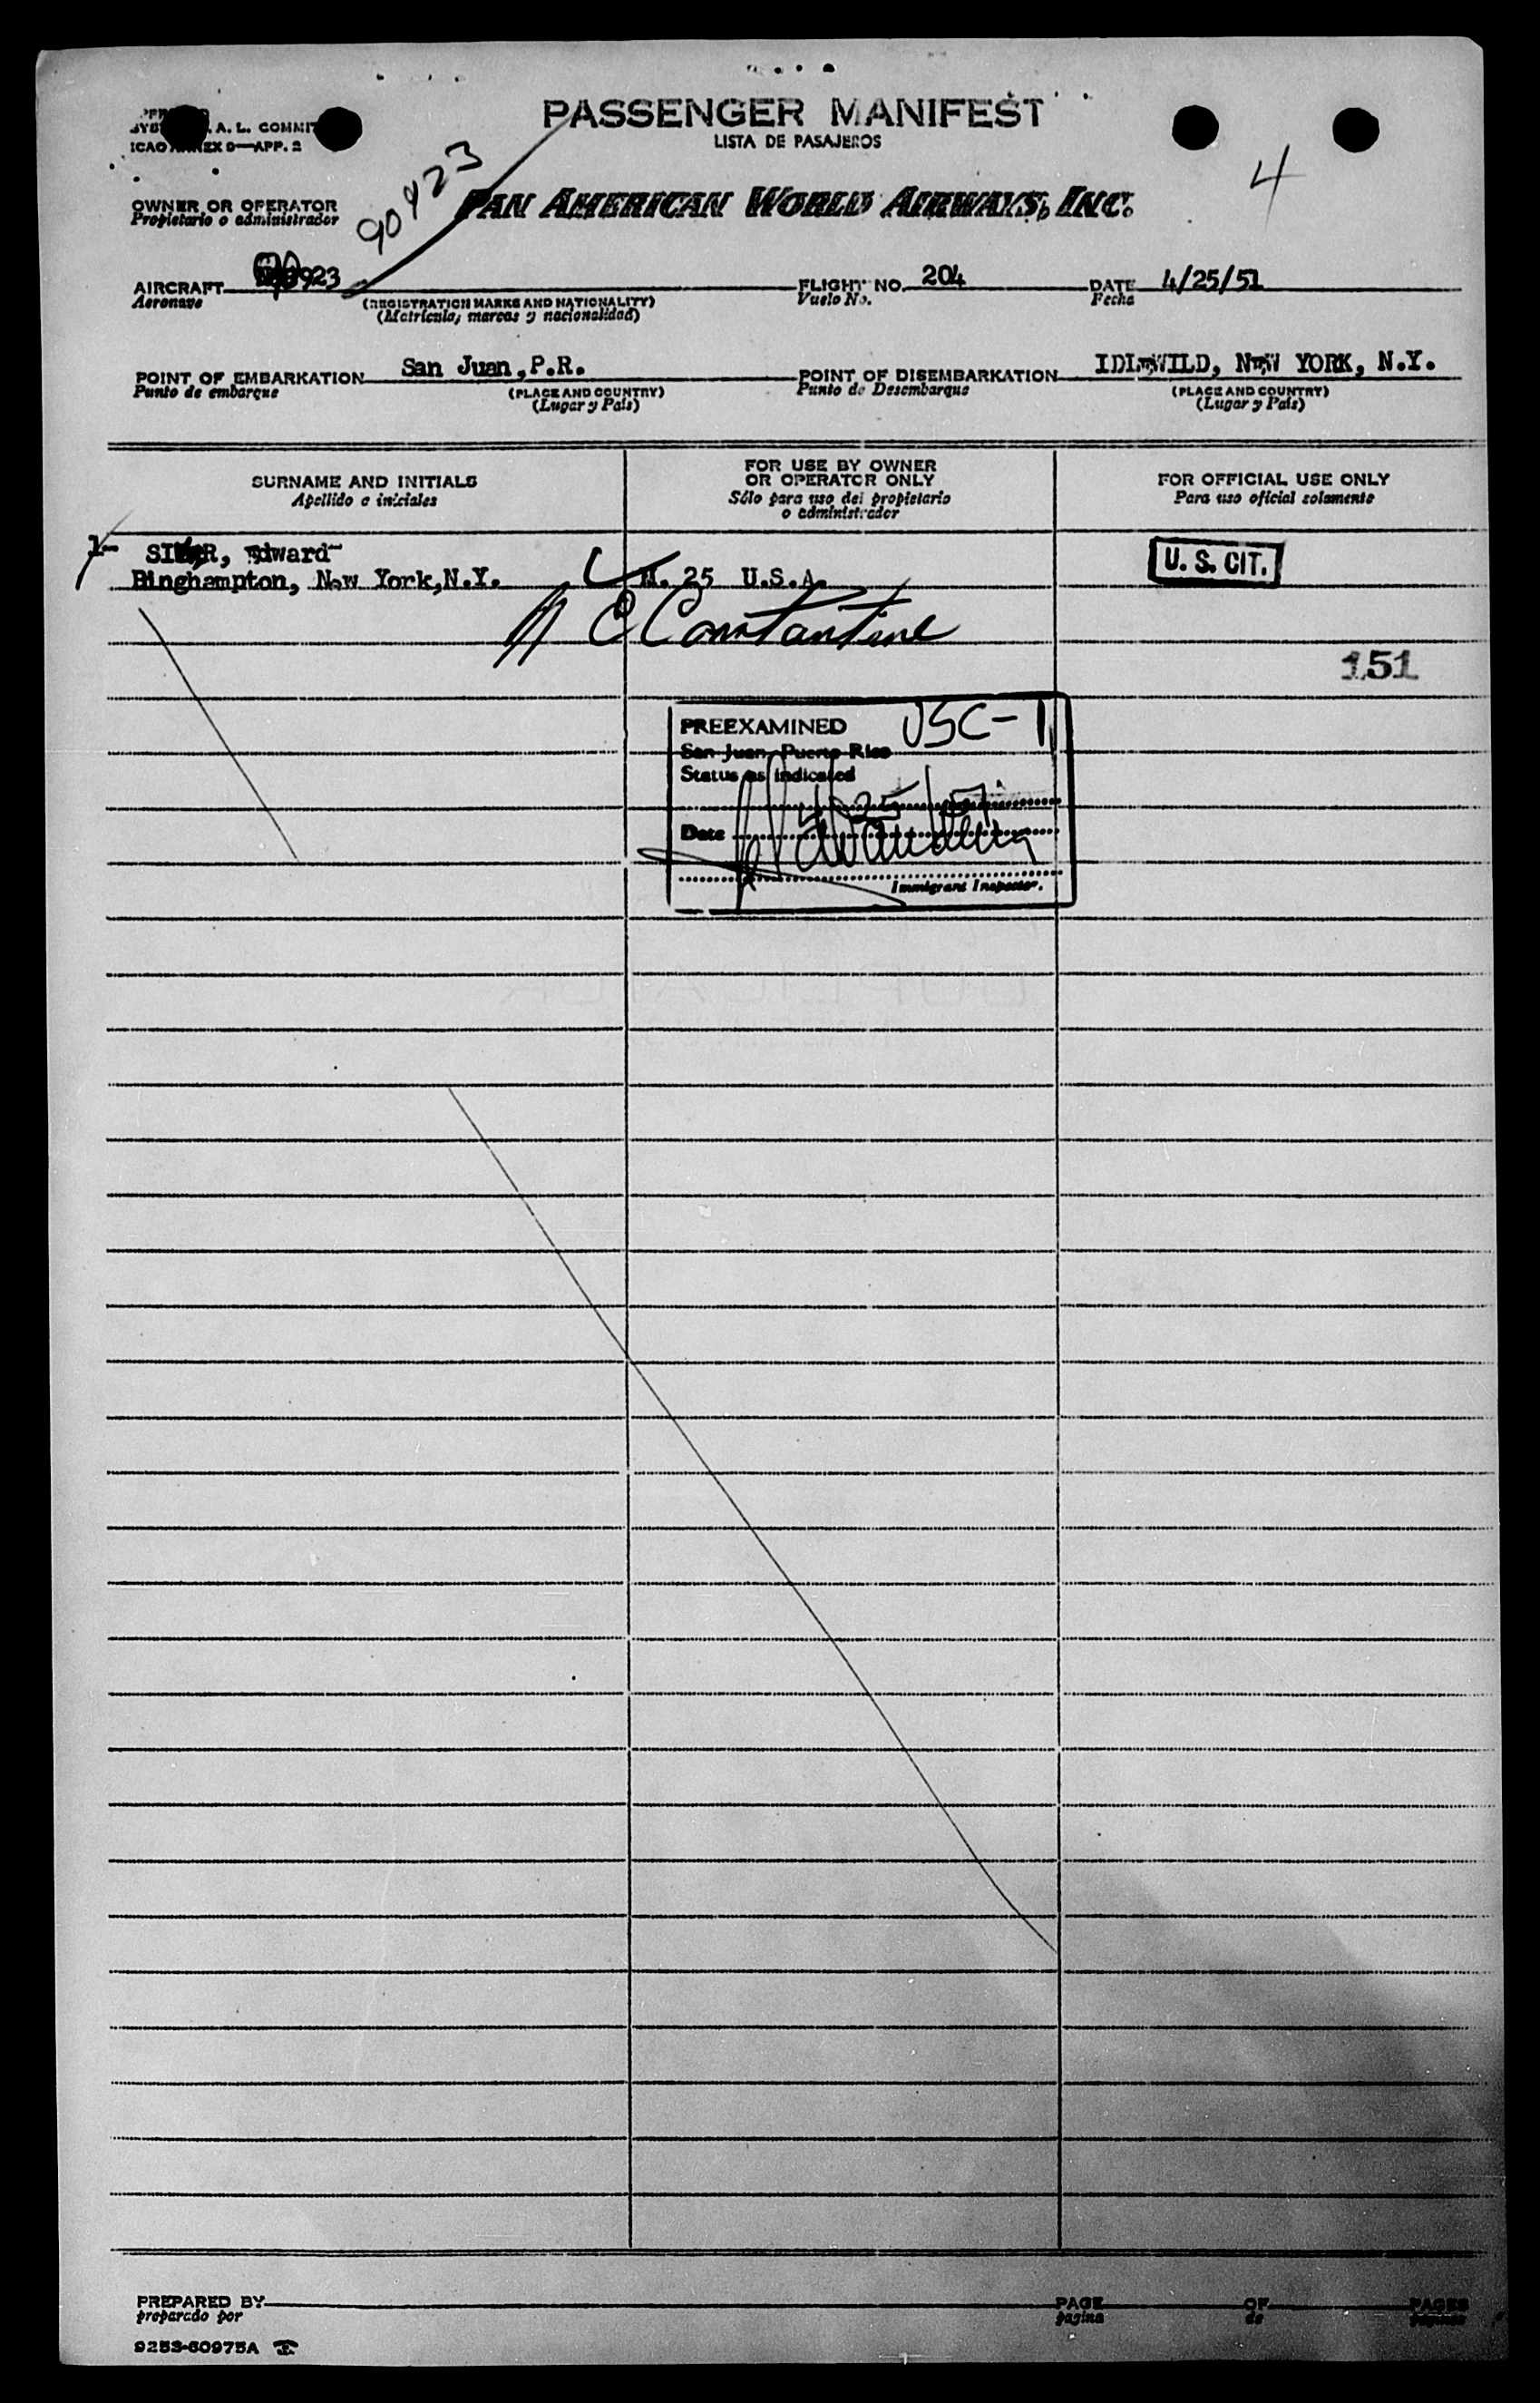 PASSENGER MANIFEST
LISTA DE PASAJEROS
A. L. COMMIT
ICAO ANNEX 9—APP. 2
4
90423
OWNER OR OPERATOR PAN AMERICAN WORLD AIRWAYS, INC.
Propietario o administrador
AIRCRAFT 923 FLIGHT NO. 204 DATE 4/25/51
Aeronave (REGISTRATION MARKS AND NATIONALITY) Vuelo No. Fecha
(Matrícula, marcas y nacionalidad)
POINT OF EMBARKATION San Juan,P.R. POINT OF DISEMBARKATION IDLEWILD, NEW YORK, N.Y.
Punto de embarque (PLACE AND COUNTRY) Punto de Desembarque (PLACE AND COUNTRY)
(Lugar y País) (Lugar y País)
SURNAME AND INITIALS FOR USE BY OWNER OR OPERATOR ONLY FOR OFFICIAL USE ONLY
Apellido e iniciales Sólo para uso del propietario o administrador Para uso oficial solamente
1- Edward
Binghampton, New York,N.Y. M. 25 U.S.A. U. S. CIT.
C Constantine
151
PREEXAMINED USC-1
San Juan, Puerto Rico
Status as indicated
4/25/51
Date
Immigrant Inspector.
PREPARED BY PAGE OF PAGES
preparado por pagina de páginas
9253-60975A